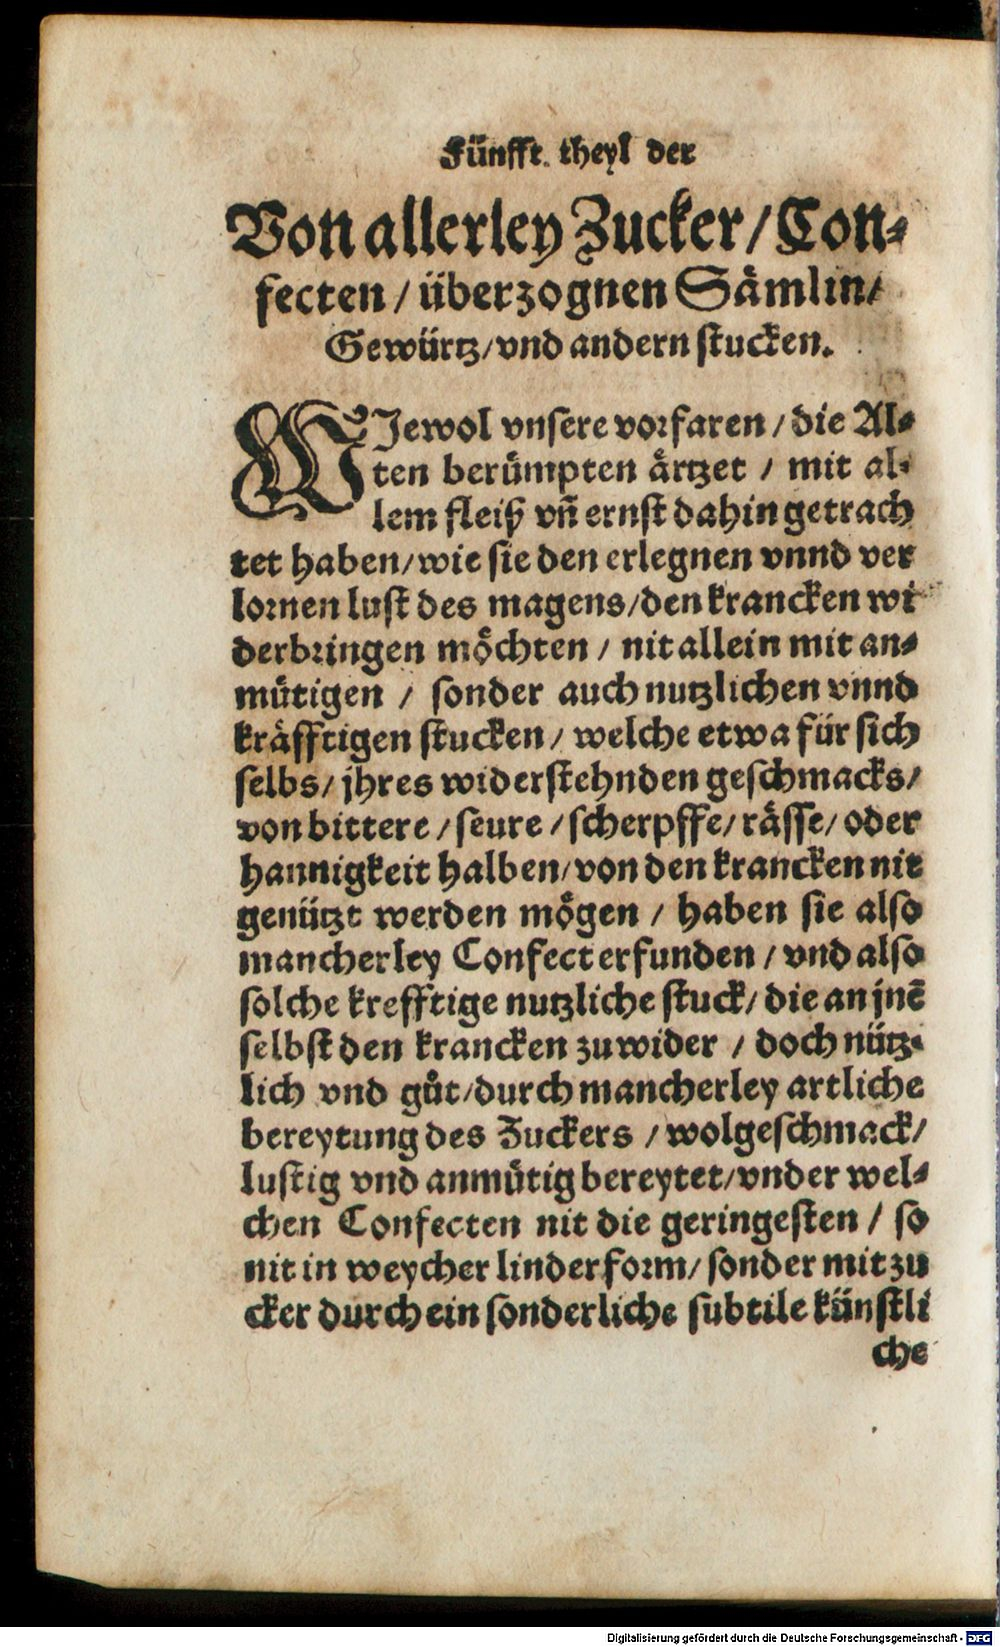 Fünfft. theyl der
Von allerley Zucker / Con⸗
fecten / überzognen Sämlin /
Gewürtz / vnd andern stucken.
WJewol vnsere vorfaren / die Al⸗
ten berümpten ärtzet / mit al⸗
lem fleiß vñ ernst dahin getrach
tet haben / wie sie den erlegnen vnnd ver
lornen lust des magens / den krancken wi
derbringen möchten / nit allein mit an⸗
mütigen / sonder auch nutzlichen vnnd
kräfftigen stucken / welche etwa für sich
selbs / jhres widerstehnden geschmacks /
von bittere / seure / scherpffe / rässe / oder
hannigkeit halben / von den krancken nit
genützt werden mögen / haben sie also
mancherley Confect erfunden / vnd also
solche krefftige nutzliche stuck / die an jnē
selbst den krancken zuwider / doch nütz⸗
lich vnd gůt / durch mancherley artliche
bereytung des Zuckers / wolgeschmack /
lustig vnd anmütig bereytet / vnder wel⸗
chen Confecten nit die geringesten / so
nit in weycher linder form / sonder mit zu
cker durch ein sonderliche subtile künstli
che
Digitalisierung gefördert durch die Deutsche Forschungsgemeinschaft - DFG